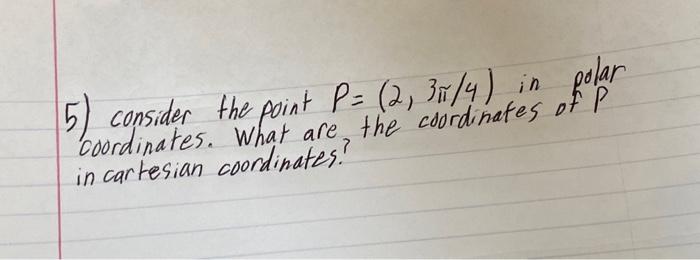 5) consider the point P= (2, 3π/4) in polar
coordinates. What are the coordinates of P
in cartesian coordinates?